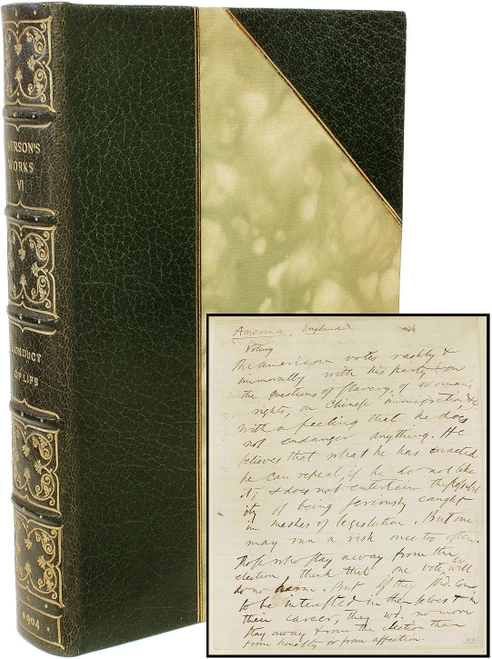 EMERSON'S
WORKS
VI
CONDUCT
OF LIFE
1904
America. England
Voting
The American votes rashly &
immorally with his party on
the questions of slavery, of woman's
rights, on Chinese immigration &c.
With a feeling that he does
not endanger anything. He
believes that what he has enacted
he can repeal, if he do not like
it; & does not entertain the possibil
ity of being seriously caught
in meshes of legislation. But one
may run a risk once too often.
Those who stay away from the
election think that one vote will
do no harm. But if they shd. come
to be interested in themselves & in
their career, they wd. no more
stay away from the election than
from honesty or from affection.